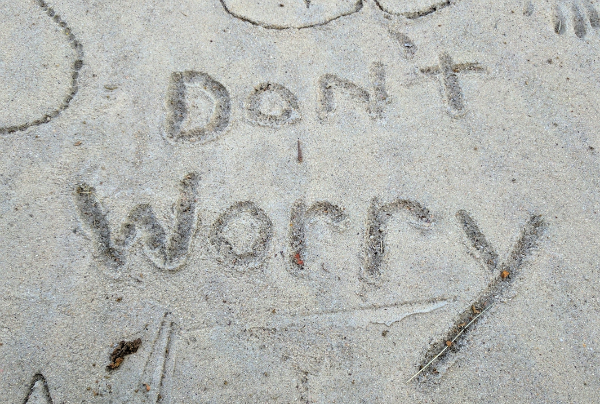 Don't
Worry